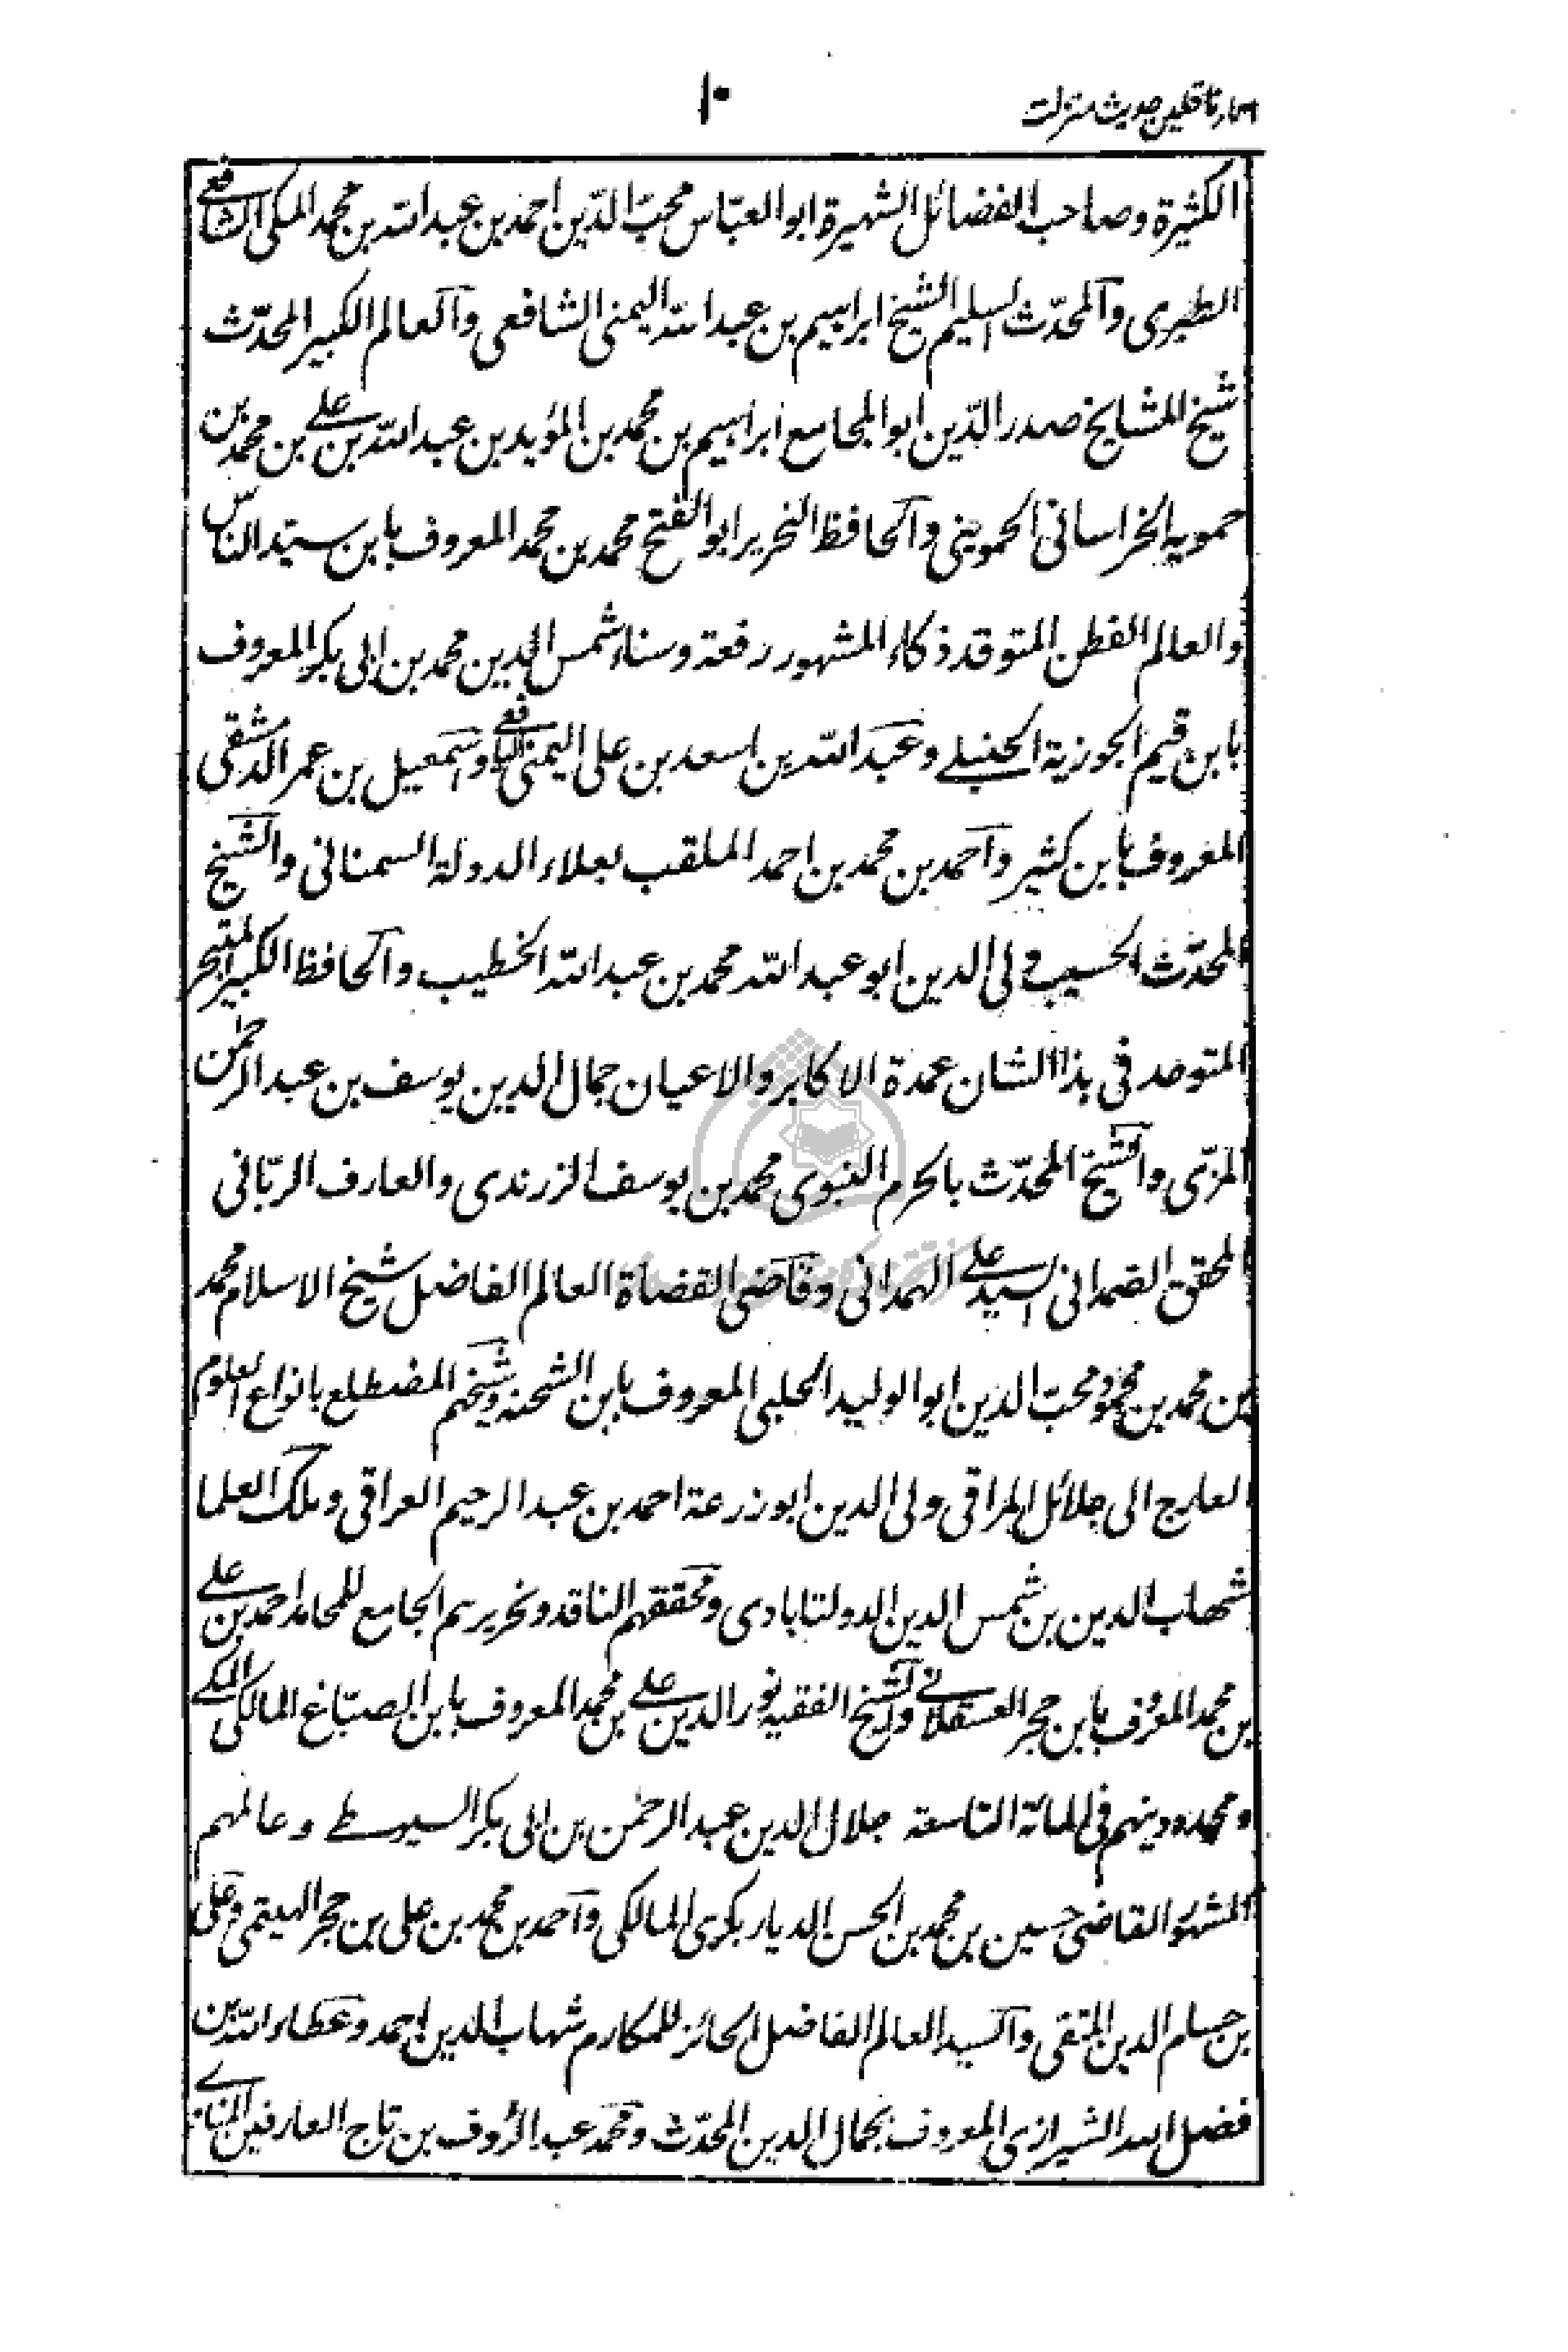 اسماء ناقلین حدیث منزلت
۱۰
الکثیرة وصاحب الفضائل الشهیرة ابو العبّاس محبّ الدّین احمد بن عبد اللّه بن محمد المکی الشافعی
الطبری والمحدّث السلیم الشیخ ابراہیم بن عبد اللّه الیمنی الشافعی والعالم الکبیر المحدّث
شیخ المشایخ صدر الدّین ابو المجامع ابراہیم بن محمد بن المؤید بن عبد اللّه بن علی بن محمد بن
حمویه الخراسانی الحموینی والحافظ النحریر ابو الفتح محمد بن محمد المعروف بابن سیّد الناس
والعالم الفطن المتوقد ذکاء المشہور رفعة وسناء شمس الدین محمد بن ابی بکر المعروف
بابن قیم الجوزیة الحنبلی وعبد اللّه بن اسعد بن علی الیمنی الیافعی واسمعیل بن عمر الدمشقی
المعروف بابن کثیر واحمد بن محمد بن احمد الملقب بعلاء الدولة السمنانی والشیخ
المحدّث الحسیب ولی الدین ابو عبد اللّه محمد بن عبد اللّه الخطیب والحافظ الکبیر المتبحر
المتوحد فی ہذا الشان عمدة الاکابر والاعیان جمال الدین یوسف بن عبد الرحمٰن
المزّی والشیخ المحدّث بالحرم النبوی محمد بن یوسف الزرندی والعارف الربّانی
المحقق الصمدانی السید علی الہمدانی وقاضی القضاة العالم الفاضل شیخ الاسلام محمد
بن محمد بن محمود محبّ الدین ابو الولید الحلبی المعروف بابن الشحنه وشیخہم المضطلع بانواع العلوم
العارج الی جلائل المراقی ولی الدین ابو زرعة احمد بن عبد الرحیم العراقی وملک العلما
شہاب الدین بن شمس الدین الدولتابادی ومحققہم الناقد ونحریرہم الجامع للمحامد احمد بن علی
بن محمد المعروف بابن حجر العسقلانی والشیخ الفقیه نور الدین علی بن محمد المعروف بابن الصبّاغ المالکی المکی
ومجدد دینہم فی المائة التاسعة جلال الدین عبد الرحمٰن بن ابی بکر السیوطی وعالمہم
المشہور القاضی حسین بن محمد بن الحسن الدیاربکری المالکی واحمد بن محمد بن علی بن حجر الہیتمی وعلی
بن حسام الدین المتقی والسید العالم الفاضل الحائز للمکارم شہاب الدین احمد وعطاء اللّه بن
فضل اللہ الشیرازی المعروف بجمال الدین المحدّث ومحمد عبد الرؤف بن تاج العارفین المناوی